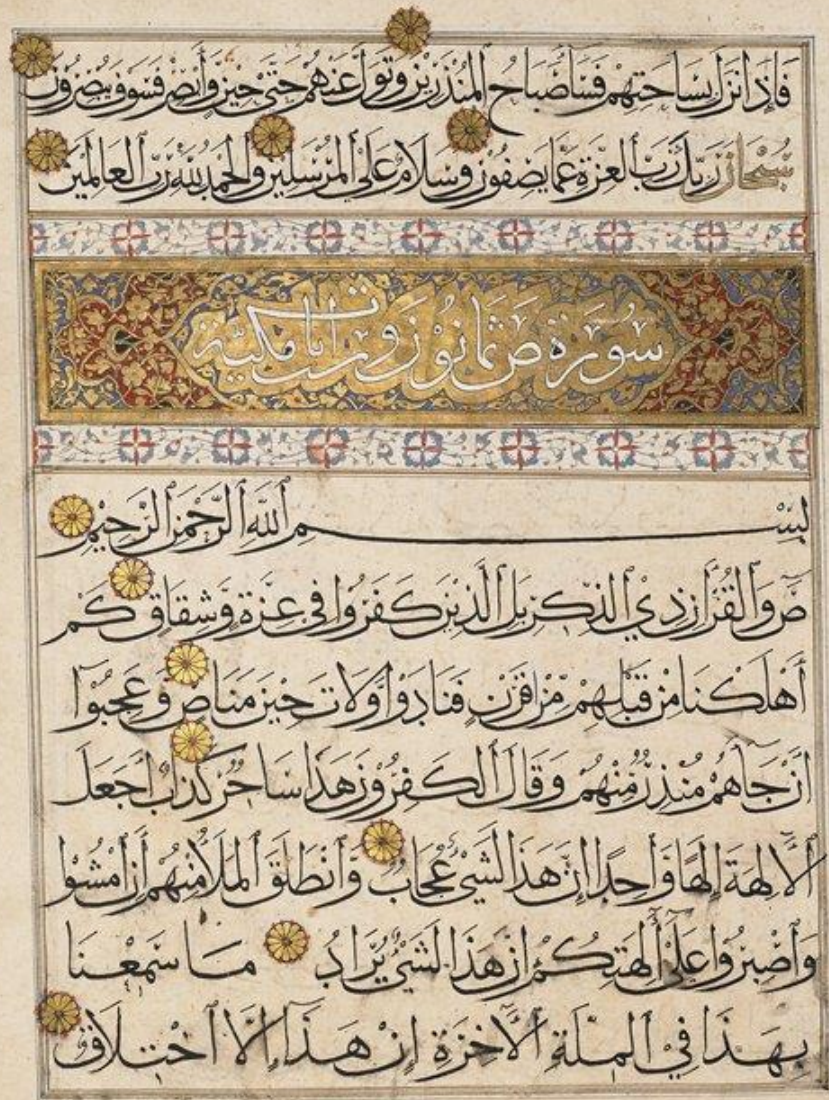 فَإِذَا نَزَلَ بِسَاحَتِهِمْ فَسَآءَ صَبَاحُ المُنْذَرِينَ وَتَوَلَّ عَنْهُمْ حَتَّى حِينٍ وَأَبْصِرْ فَسَوْفَ يُبْصِرُونَ
سُبْحَانَ رَبِّكَ رَبِّ العِزَّةِ عَمَّا يَصِفُونَ وَسَلَامٌ عَلَى المُرْسَلِينَ وَالحَمْدُ لِلّٰهِ رَبِّ العَالَمِينَ
سُورَة ص ثمَانُونَ ايات مكيّة
بِسْمِ ٱللَّهِ ٱلرَّحْمٰنِ ٱلرَّحِيمِ
صٓ وَالْقُرْآنِ ذِي ٱلذِّكْرِ بَلِ ٱلَّذِينَ كَفَرُوا فِي عِزَّةٍ وَّشِقَاقٍ كَمْ
أَهْلَكْنَا مِنْ قَبْلِهِمْ مِّنْ قَرْنٍ فَنَادَوْا وَّلَاتَ حِينَ مَنَاصٍ وَعَجِبُوٓا
أَنْ جَآهُمْ مُنْذِرٌ مِّنْهُمْ وَقَالَ ٱلْكَفِرُونَ هَذَا سَاحِرٌ كَذَّابٌ أَجَعَلَ
ٱلْآلِهَةَ إِلَهًا وَّاحِدًا إِنَّ هَذَا لَشَيْءٌ عُجَابٌ وَٱنْطَلَقَ ٱلْمَلَأُ مِنْهُمْ أَنِ ٱمْشُوا
وَٱصْبِرُوا عَلَىٓ آلِهَتِكُمْ إِنَّ هَذَا لَشَيْءٌ يُّرَادُ مَا سَمِعْنَا
بِهَذَا فِي ٱلْمِلَّةِ ٱلْآخِرَةِ إِنْ هَذَآ إِلَّا ٱخْتِلَاقٌ